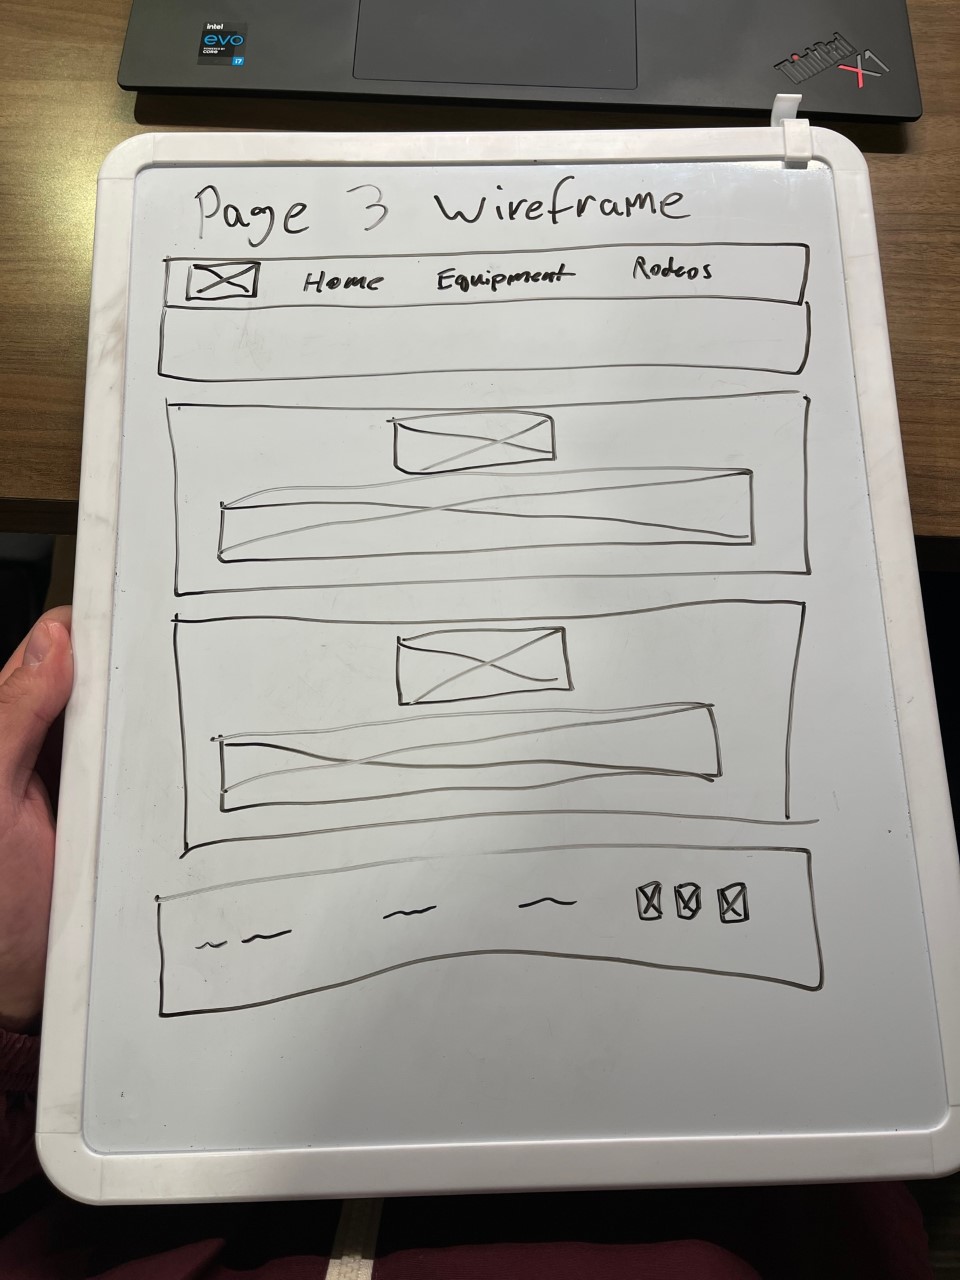 intel
evo
POWERED BY
CORE
i7
ThinkPad
X1
Page 3 Wireframe
Home Equipment Rodeos